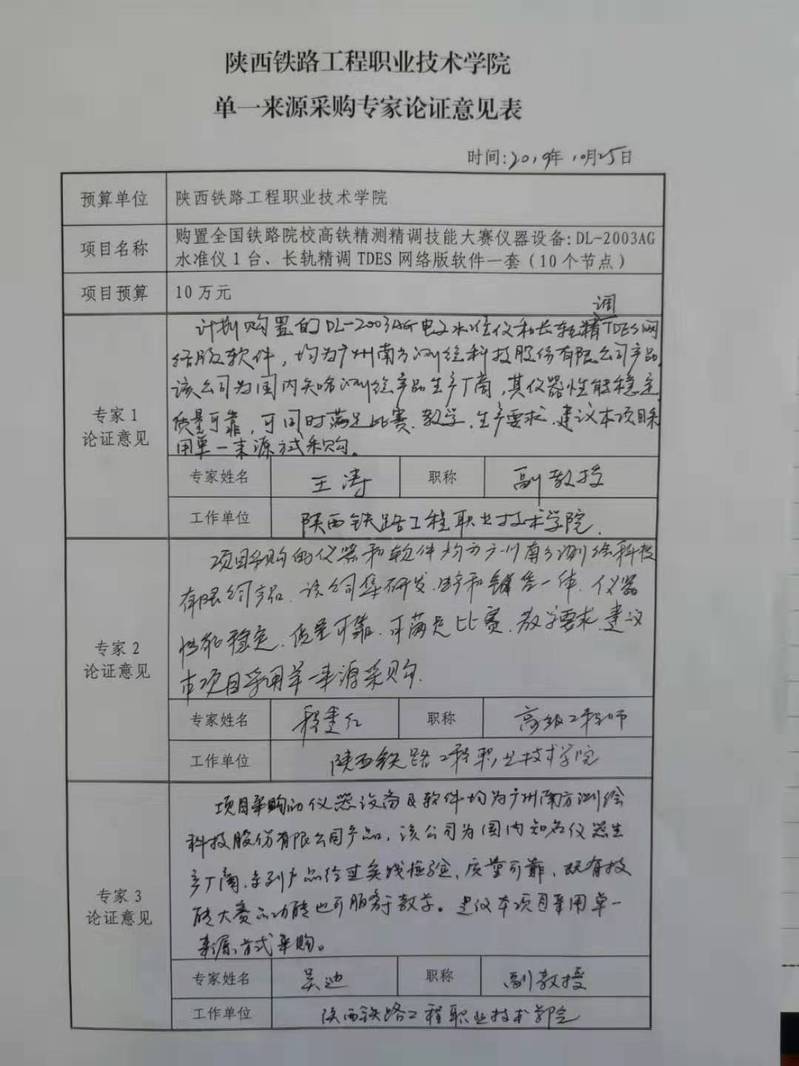 陕西铁路工程职业技术学院
单一来源采购专家论证意见表
时间:2019年10月25日
预算单位 陕西铁路工程职业技术学院
项目名称 购置全国铁路院校高铁精测精调技能大赛仪器设备:DL-2003AG
水准仪1台、长轨精调TDES网络版软件一套(10个节点)
项目预算 10万元
计划购置的DL-2003AG电子水准仪和长轨精调TDES网
络版软件,均为广州南方测绘科技股份有限公司产品,
该公司为国内知名测绘产品生产厂商,其仪器性能稳定,
专家1
论证意见
质量可靠,可同时满足比赛、教学、生产要求,建议本项目采
用单一来源方式采购。
专家姓名 王涛 职称 副教授
工作单位 陕西铁路工程职业技术学院
项目采购的仪器和软件均为广州南方测绘科技
有限公司产品,该公司集研发、生产和销售一体,仪器
专家2
论证意见
性能稳定,质量可靠,可满足比赛、教学要求,建议
本项目采用单一来源采购.
专家姓名 职称 高级工程师
工作单位 陕西铁路工程职业技术学院
项目采购的仪器设备及软件均为广州南方测绘
科技股份有限公司产品,该公司为国内知名仪器生
专家3
论证意见
产厂商,系列产品经过实践检验,质量可靠,既有技
能大赛功能也可服务于教学。建议本项目采用单一
来源方式采购。
专家姓名 吴迪 职称 副教授
工作单位 陕西铁路工程职业技术学院